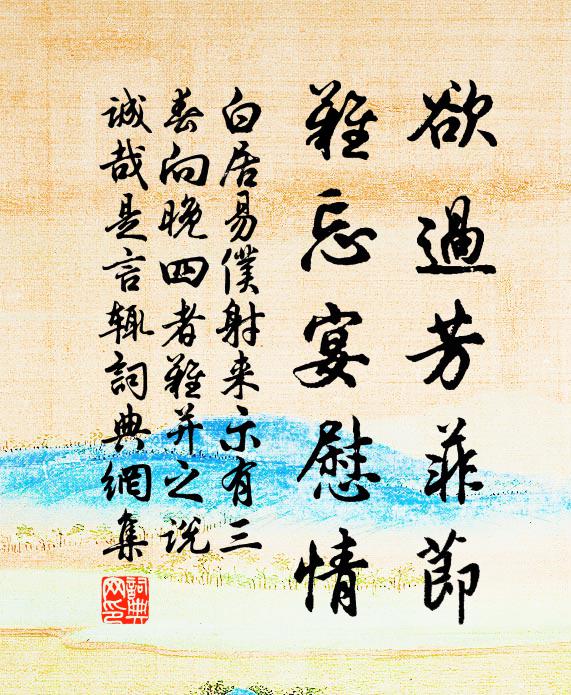 欲過芳菲節
難忘宴慰情
白居易僕射来示有三
春向晚四者難并之说
誠哉是言輒詞典網集
詞典
网印